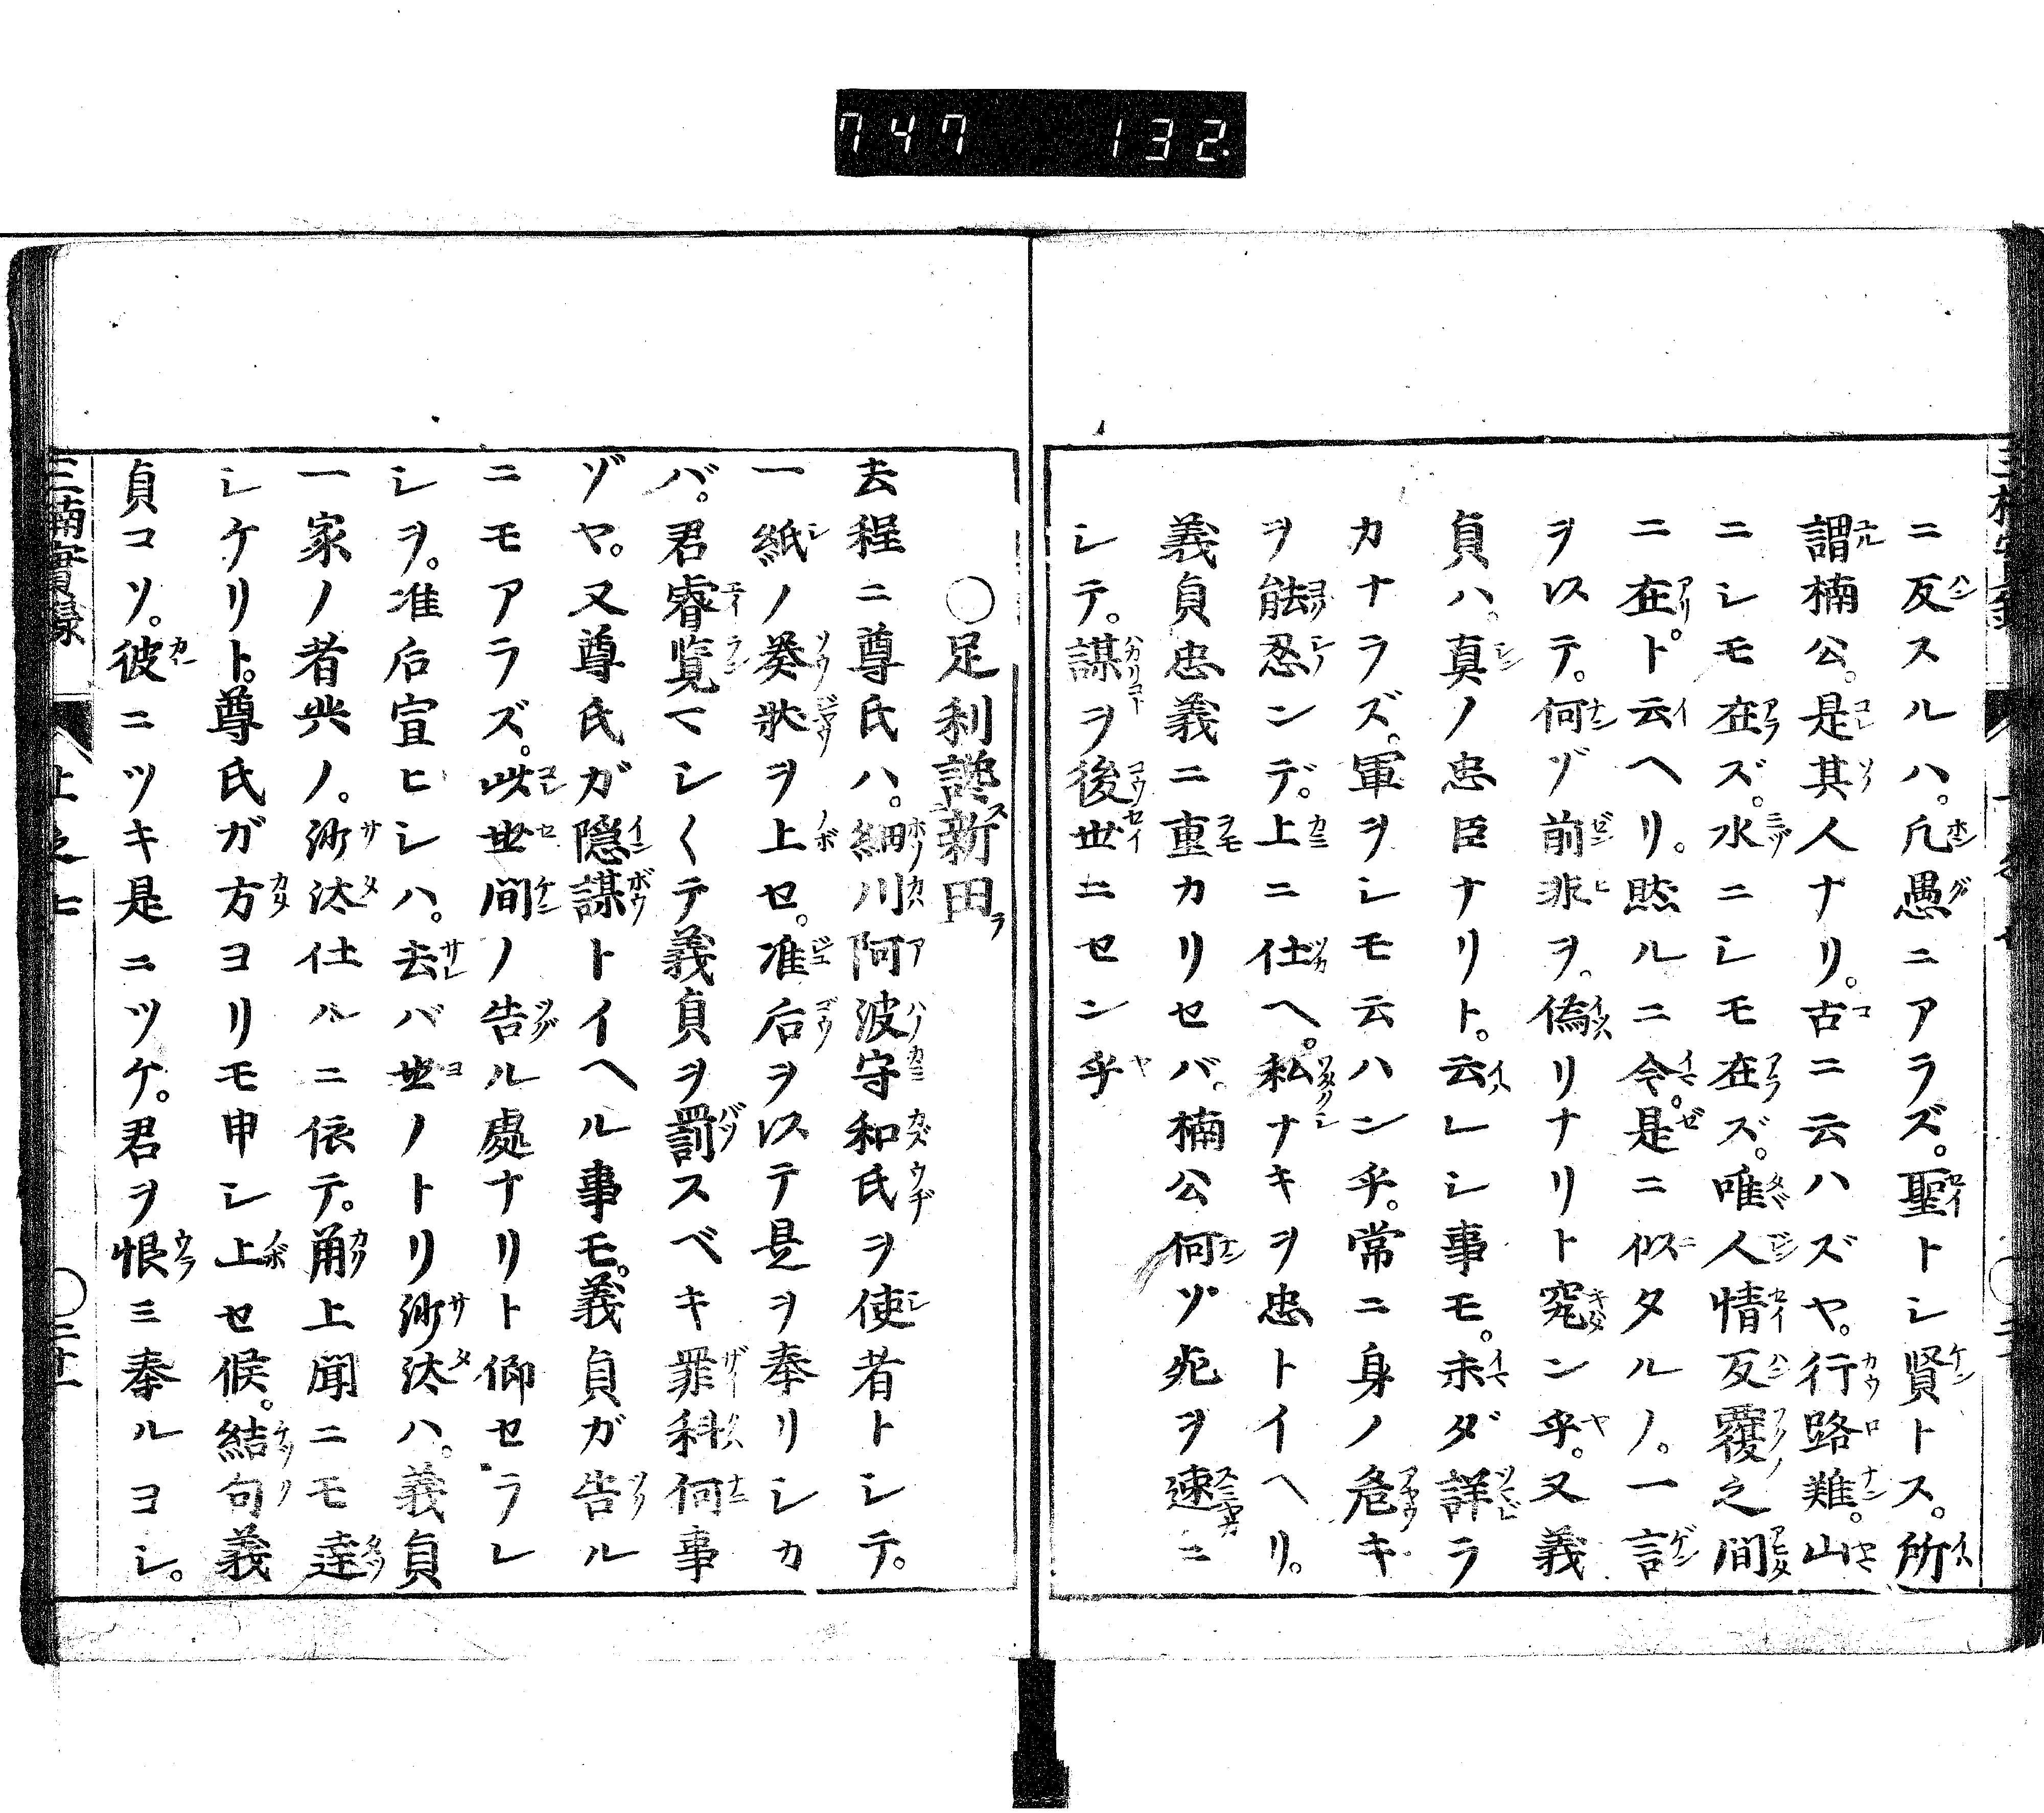 747 132.
ニ反スルハ。凡愚ニアラズ。聖トシ賢トス。所
謂楠公。是其人ナリ。古ニ云ハズヤ。行路難。山
ニシモ在ズ。水ニシモ在ズ。唯人情反覆之間
ニ在。ト云ヘリ。然ルニ今。是ニ似タルノ。一言
ヲ以テ。何ゾ前非ヲ。偽リナリト究ン乎。又義
貞ハ。真ノ忠臣ナリト。云レシ事モ。未ダ詳ラ
カナラズ。軍ヲシモ云ハン乎。常ニ身ノ危キ
ヲ能忍ンデ。上ニ仕ヘ。私ナキヲ忠トイヘリ。
義貞忠義ニ重カリセバ。楠公何ゾ死ヲ速ニ
シテ。謀ヲ後世ニセン乎
○足利讒新田
去程ニ尊氏ハ。細川阿波守和氏ヲ使者トシテ。
一紙ノ奏状ヲ上セ。准后ヲ以テ是ヲ奉リシカ
バ。君睿覧マシ〱テ義貞ヲ罰スベキ罪科何事
ゾヤ。又尊氏ガ隠謀トイヘル事モ。義貞ガ告ル
ニモアラズ。此世間ノ告ル處ナリト仰セラレ
シヲ。准后宣ヒシハ。去バ世ノトリ沙汰ハ。義貞
一家ノ者共ノ。沙汰仕ルニ依テ。角上聞ニモ達
シケリト。尊氏ガ方ヨリモ申シ上セ候。結句義
貞コソ。彼ニツキ是ニツケ。君ヲ恨ミ奉ルヨシ。
三楠實録 上之七 ○三十一